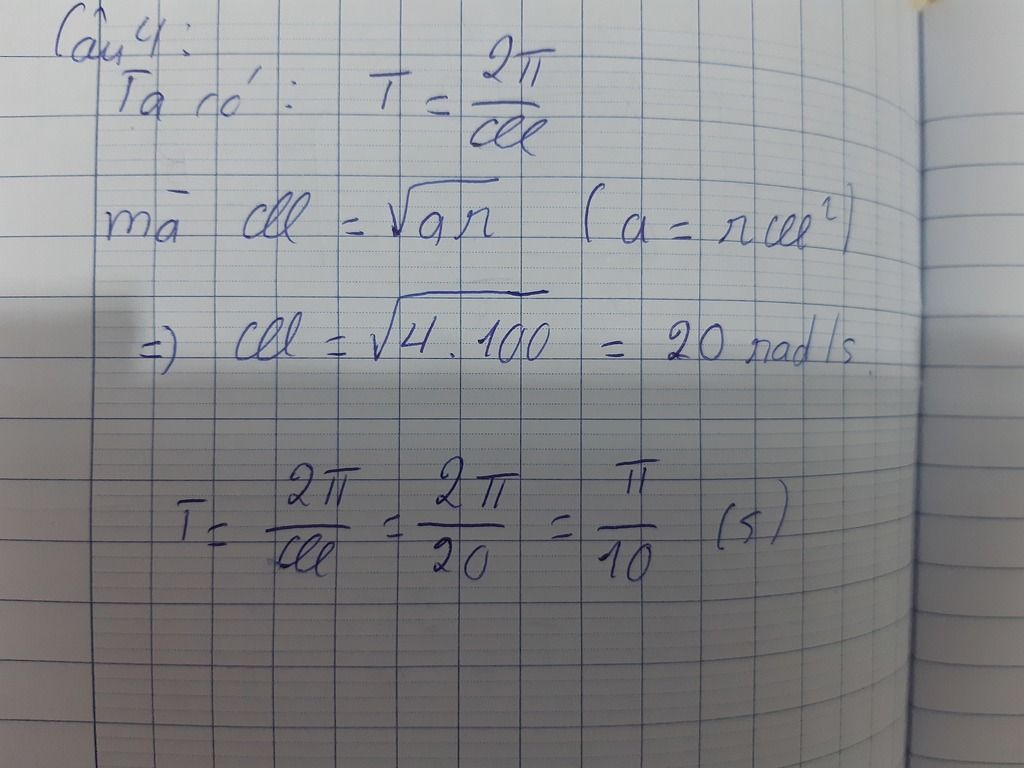 Câu 4:
Ta có: T = 2π/ω
mà ω = √ar (a = rω²)
=> ω = √4.100 = 20 rad/s
T = 2π/ω = 2π/20 = π/10 (s)